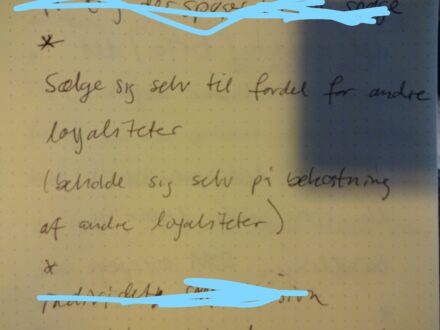 *
Sælge sig selv til fordel for andre
loyaliteter
(beholde sig selv på bekostning
af andre loyaliteter)
*